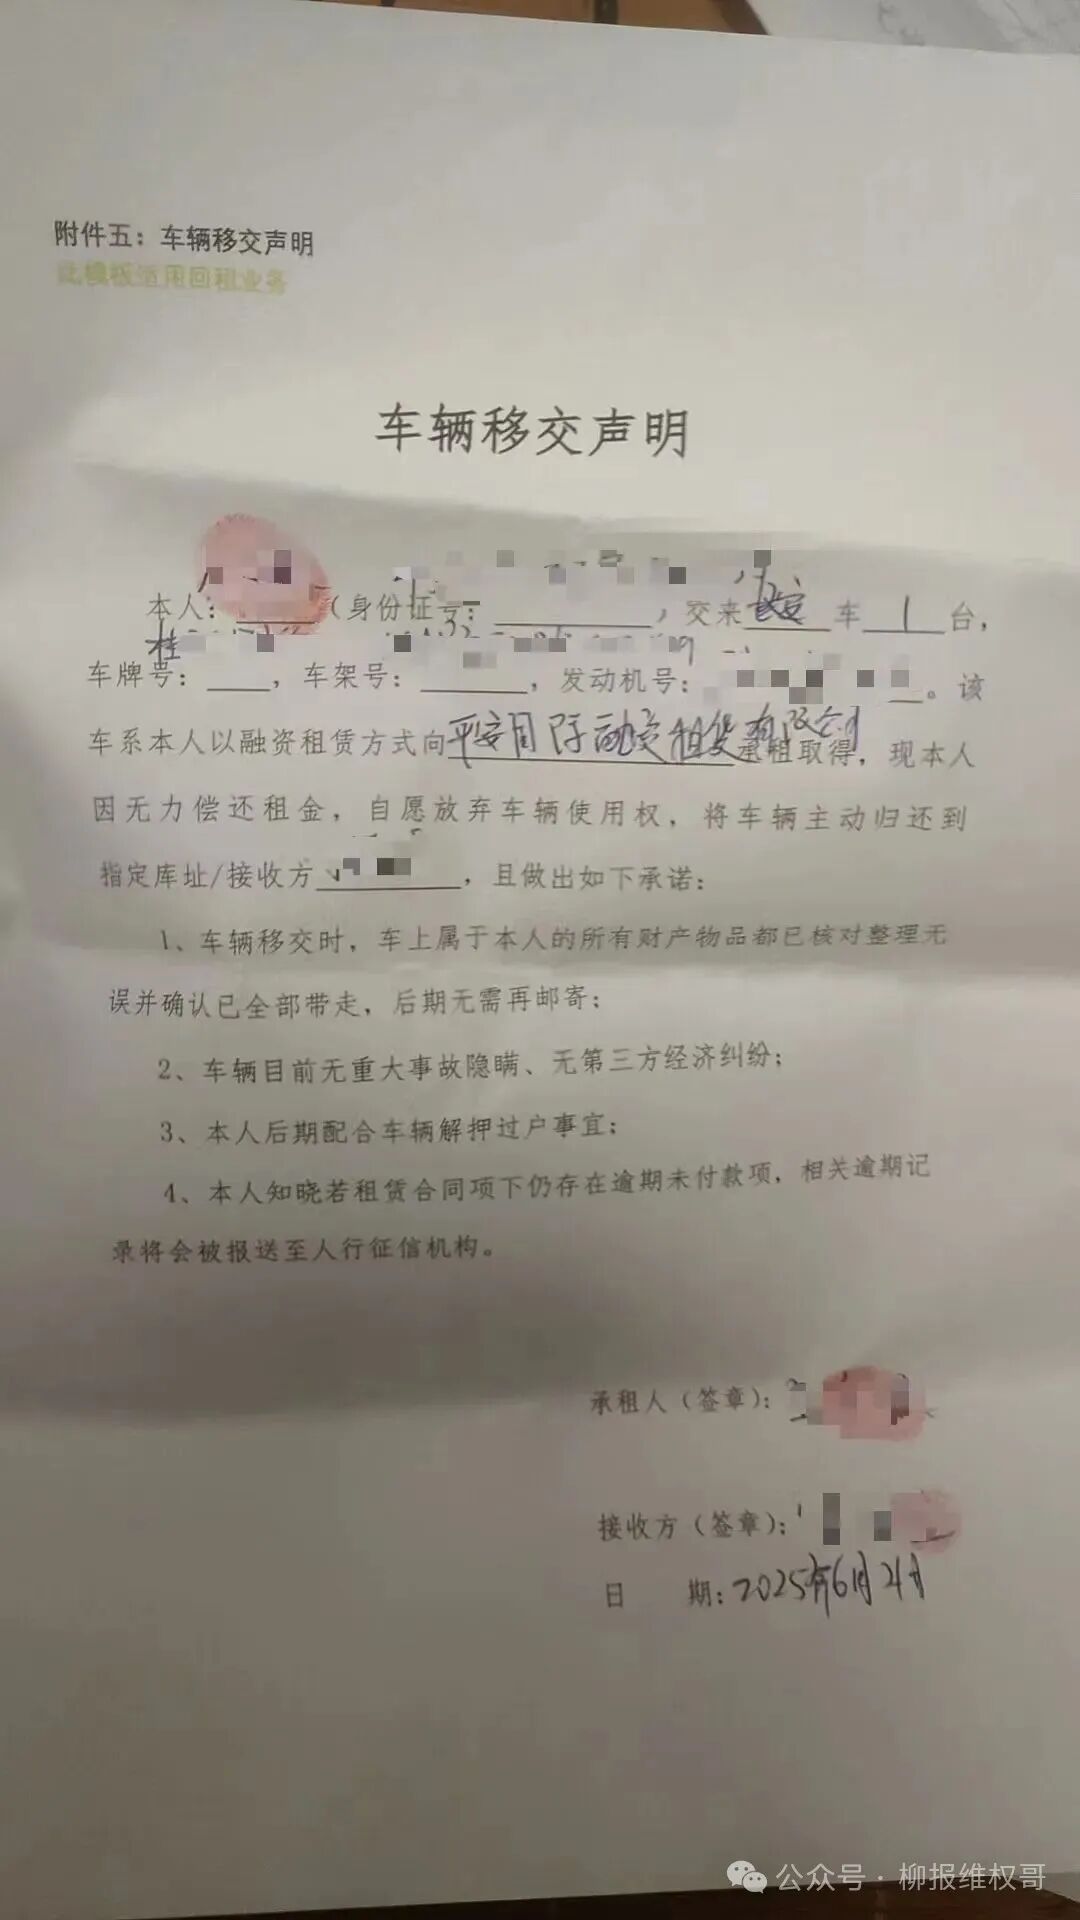 附件五：车辆移交声明
此模板适用回租业务
车辆移交声明
本人：（身份证号：，交来长安车1台，
车牌号：桂，车架号：，发动机号：。该
车系本人以融资租赁方式向平安国际融资租赁有限公司承租取得，现本人
因无力偿还租金，自愿放弃车辆使用权，将车辆主动归还到
指定库址/接收方，且做出如下承诺：
1、车辆移交时，车上属于本人的所有财产物品都已核对整理无
误并确认已全部带走，后期无需再邮寄；
2、车辆目前无重大事故隐瞒、无第三方经济纠纷；
3、本人后期配合车辆解押过户事宜；
4、本人知晓若租赁合同项下仍存在逾期未付款项，相关逾期记
录将会被报送至人行征信机构。
承租人（签章）：
接收方（签章）：
日 期：2025年6月2日
公众号·柳报维权哥